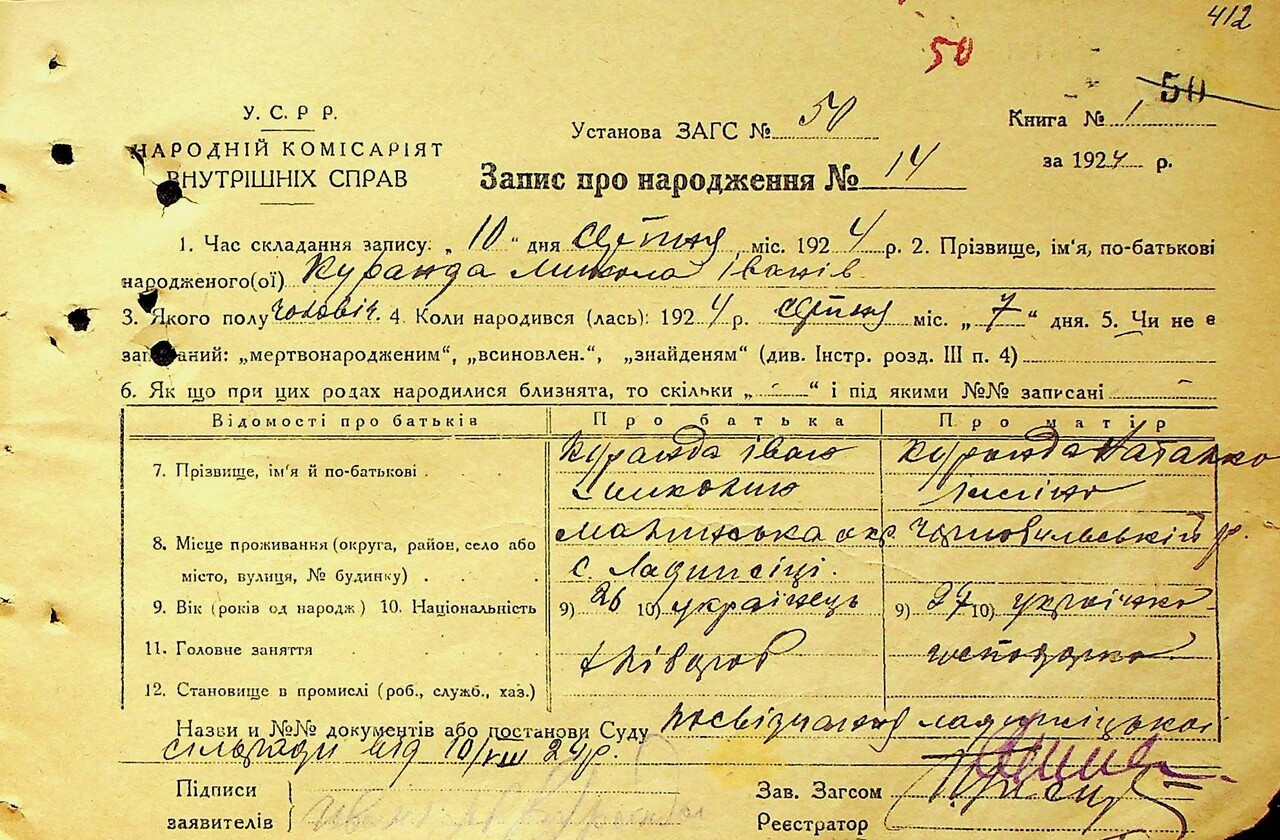 412
50
50
У. С. Р Р.
НАРОДНІЙ КОМІСАРІЯТ
ВНУТРІШНІХ СПРАВ
Установа ЗАГС № 50
Книга № 1
за 1924 р.
Запис про народження № 14
1. Час складання запису: „ 10 “ дня серпня міс. 1924 р. 2. Прізвище, ім'я, по-батькові
народженого(ої) Куранда Микола Іванів
3. Якого полу чоловіч. 4. Коли народився (лась): 1924 р. серпня міс. „ 7 “ дня. 5. Чи не є
записаний: „мертвонародженим“, „всиновлен.“, „знайденям“ (див. Інстр. розд. III п. 4)
6. Як що при цих родах народилися близнята, то скільки „ - “ і під якими №№ записані -
Відомості про батьків Про батька Про матір
7. Прізвище, ім'я й по-батькові . Куранда Іван Куранда
8. Місце проживання (округа, район, село або окр. Чорновильський р.
місто, вулиця, № будинку) . . с.
9. Вік (років од народж) 10. Національність 9) 26 10) українець 9) 27 10) українка
11. Головне заняття . . . . хлібороб господарка
12. Становище в промислі (роб., служб., хаз.)
Назви и №№ документів або постанови Суду посвідчення
сільради від 10/VIII 24 р.
Підписи
заявителів
Зав. Загсом
Реєстратор